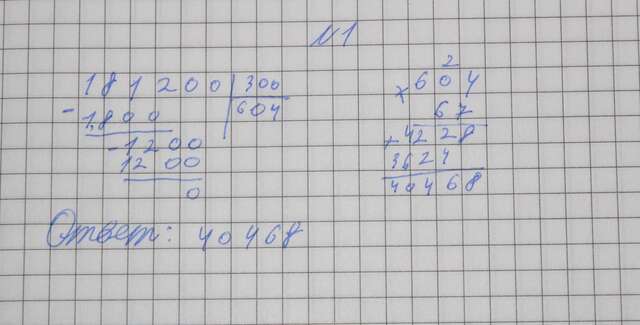 №1
181200 | 300
- 1800 | 604
- 1200
1200
0
2
× 604
67
+ 4228
3624
40468
Ответ: 40468